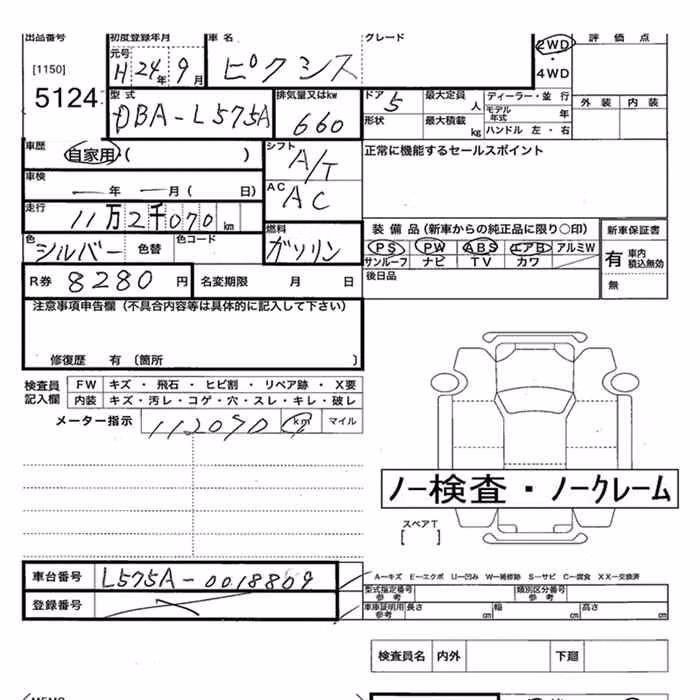 出品番号 初度登録年月 車名 グレード 2WD 評価点
[1150] 元号 H 24年 9月 ピクシス ・ 4WD
5124 型式 DBA-L575A 排気量又はkw 660 ドア 5 最大定員 人 ディーラー・並行 外装 内装
形状 最大積載 kg モデル年式 年
ハンドル 左・右
車歴 自家用・( ) シフト A/T 正常に機能するセールスポイント
車検 — 年 — 月( 日) AC AC
走行 11万2千070 km 燃料 ガソリン 装備品(新車からの純正品に限り○印) 新車保証書
色 シルバー 色替 色コード PS PW ABS エアB アルミW 有 車内積込無効
サンルーフ ナビ TV カワ
R券 8280円 名変期限 月 日 後日品 無
注意事項申告欄(不具合内容等は具体的に記入して下さい)
修復歴 有 〔箇所 〕
検査員記入欄 FW キズ・飛石・ヒビ割・リペア跡・X要
内装 キズ・汚レ・コゲ・穴・スレ・キレ・破レ
メーター指示 112070 km マイル
ノー検査・ノークレーム
スペアT
[ ]
車台番号 L575A-0018809 A—キズ E—エクボ U—凹み W—補修跡 S—サビ C—腐食 XX—交換済
型式指定番号 参考 類別区分番号 参考
登録番号 車庫証明用 参考 長さ cm 幅 cm 高さ cm
検査員名 内外 下廻